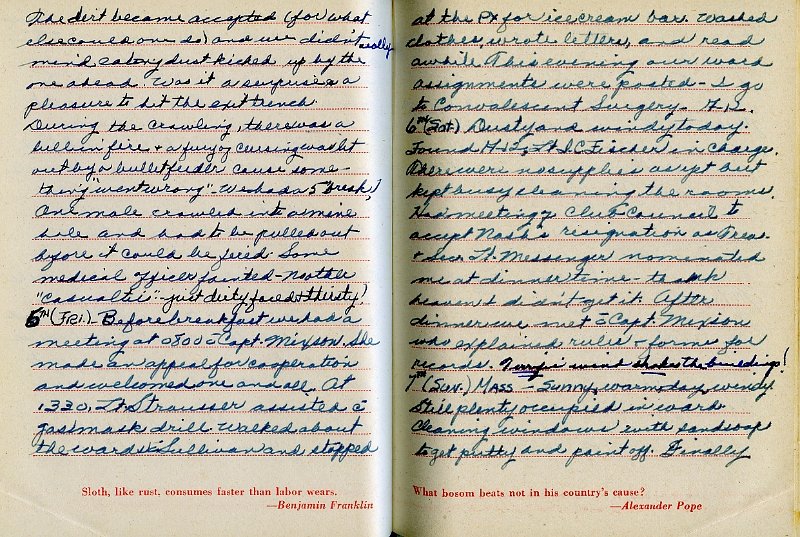 The dirt became accepted (for what
else could one do) and we didn't really
mind eating dust kicked up by the
one ahead. Was it a surprise & a
pleasure to hit the exit trench.
During the crawling, there was a
hell in fire & a fury of cursing was let
out by a bullet feeder cause some-
thing "went wrong" - We had a 5" break!
One male crawled into a mine
hole and had to be pulled out
before it could be fired. Some
medical officer fainted - No other
"casualties" - just dirty faced & thirsty!
(FRI.) - Before breakfast we had a
meeting at 0800 c̄ Capt. Mixson. She
made an appeal for cooperation
and welcomed one and all. At
1330, Lt. Strausser assisted c̄
gas mask drill. Walked about
the ward c̄ Sullivan and stopped
Sloth, like rust, consumes faster than labor wears.
—Benjamin Franklin
at the PX for ice cream bar. Washed
clothes, wrote letters, and read
awhile. This evening our ward
assignments were posted - I go
to Convalescent Surgery.
6th (Sat) Dusty and windy today.
Found Lt. Fischer in charge.
There were no supplies as yet but
kept busy cleaning the rooms.
Had meeting of Club Council to
accept Nash's resignation as Treas.
& Sec. Lt. Messenger nominated
me at dinner time - thank
heaven I didn't get it. After
dinner we met c̄ Capt. Mixson
who explained rules & forms for
records. wind shakes the buildings!
7th (Sun.) Mass - Sunny, warm day, windy
Still plenty occupied in ward
cleaning windows with sandsoap
to get putty and paint off. Finally
What bosom beats not in his country's cause?
—Alexander Pope